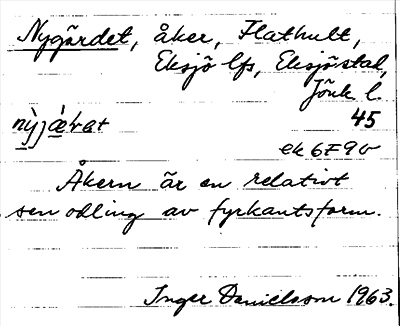 Nygärdet, åker, Flathult,
Eksjö lfs, Eksjö stad,
Jönk l.
45
ek 6F9a
Åkern är en relativt
sen odling av fyrkantsform.
Inger Danielsson 1963.